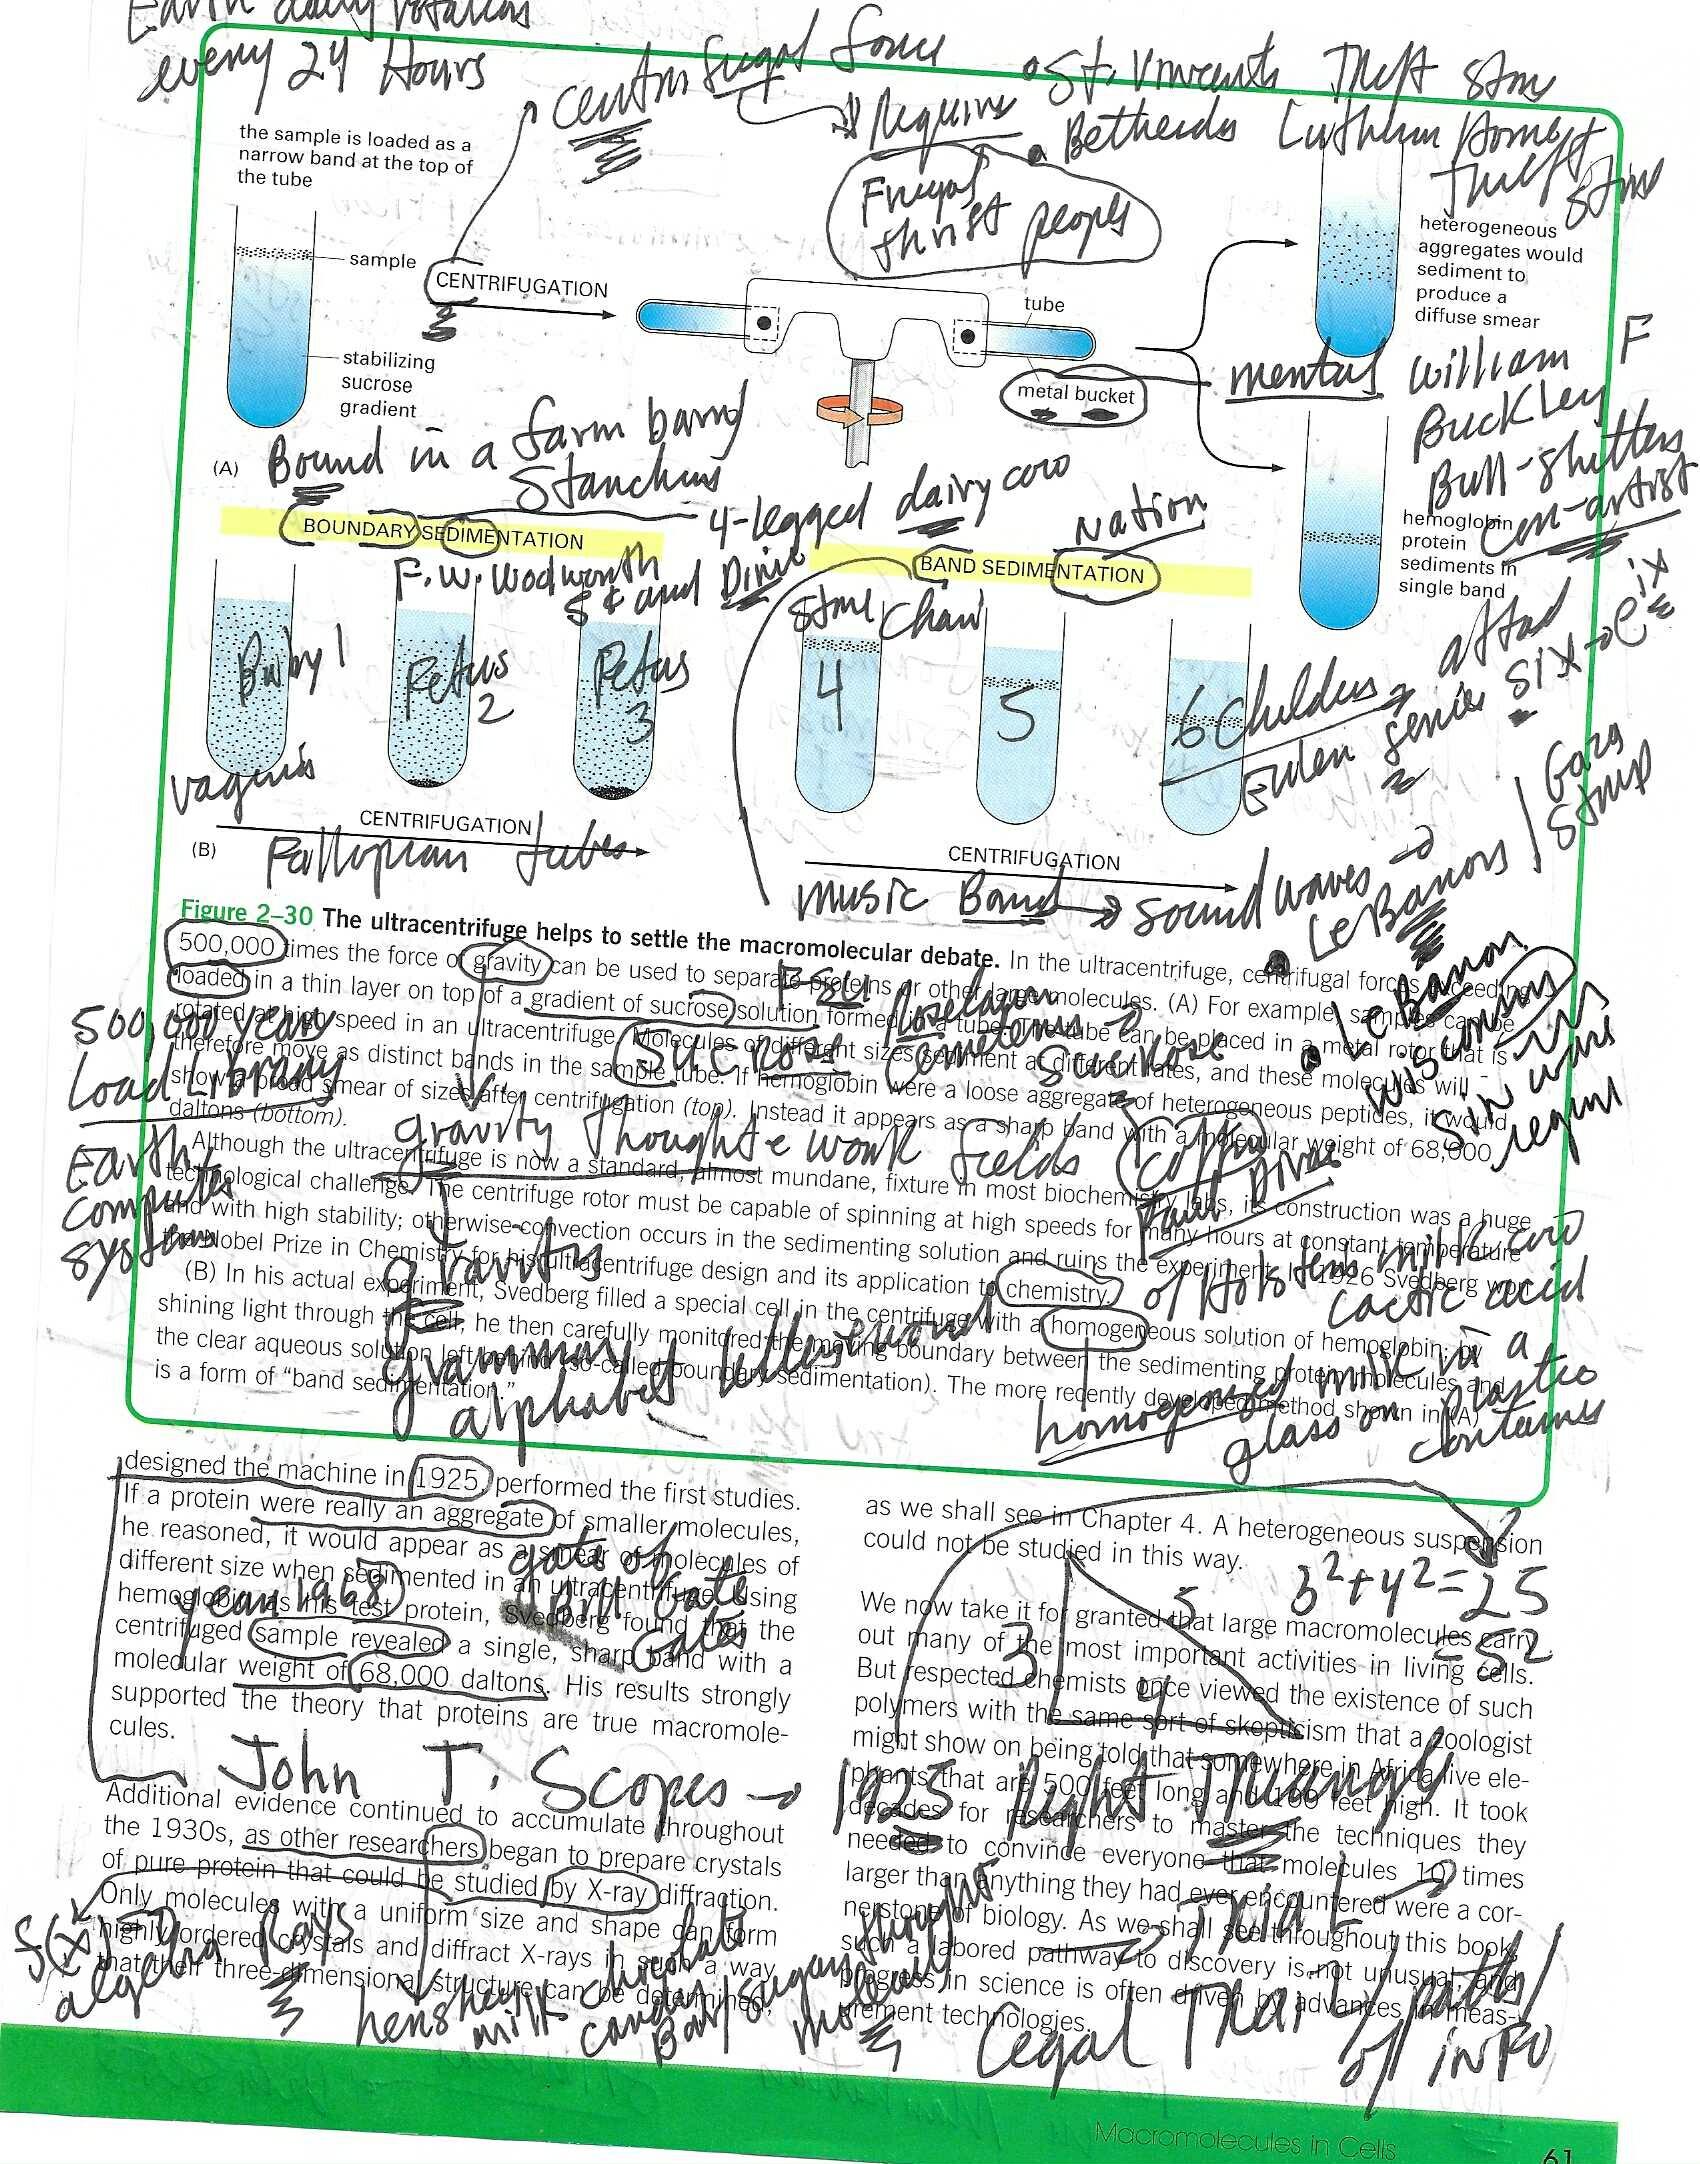 Earth daily rotation
every 24 Hours
centri fugal force
Require
Frugal
thrift peoples
• St. Vincents Theft Store
• Bethesda Lutheran Homes
Theft Store
the sample is loaded as a
narrow band at the top of
the tube
sample
stabilizing
sucrose
gradient
CENTRIFUGATION
tube
metal bucket
mental
heterogeneous
aggregates would
sediment to
produce a
diffuse smear
William F
Buckley
Bull-shitters
con-artist
hemoglobin
protein
sediments in
single band
(A)
Bound in a farm barn
Stanchins
4-legged dairy cow
BOUNDARY SEDIMENTATION
F. W. Wodworth
5 ¢ and Dime
Store Chain
Nation
BAND SEDIMENTATION
Baby 1
Fetus
2
Fetus
3
4
5
6 Childers
Eulen series six
vaginis
CENTRIFUGATION
(B)
Fallopian tubes
CENTRIFUGATION
music Band
Sound waves
LeBanons
• LeBanon
Wisconsins
Sin wave
region
Figure 2–30 The ultracentrifuge helps to settle the macromolecular debate. In the ultracentrifuge, centrifugal forces exceeding
500,000 times the force of gravity can be used to separate proteins or other large molecules. (A) For example, samples can be
loaded in a thin layer on top of a gradient of sucrose solution formed in a tube. The tube can be placed in a metal rotor that is
rotated at high speed in an ultracentrifuge. Molecules of different sizes sediment at different rates, and these molecules will
therefore move as distinct bands in the sample tube. If hemoglobin were a loose aggregate of heterogeneous peptides, it would
show a broad smear of sizes after centrifugation (top). Instead it appears as a sharp band with a molecular weight of 68,000
daltons (bottom).
Although the ultracentrifuge is now a standard, almost mundane, fixture in most biochemistry labs, its construction was a huge
technological challenge. The centrifuge rotor must be capable of spinning at high speeds for many hours at constant temperature
and with high stability; otherwise convection occurs in the sedimenting solution and ruins the experiment. In 1926 Svedberg won
the Nobel Prize in Chemistry for his ultracentrifuge design and its application to chemistry.
(B) In his actual experiment, Svedberg filled a special cell in the centrifuge with a homogeneous solution of hemoglobin; by
shining light through the cell, he then carefully monitored the moving boundary between the sedimenting protein molecules and
the clear aqueous solution left behind (so-called boundary sedimentation). The more recently developed method shown in (A)
is a form of "band sedimentation."
FSU
Suc Rose
Cemeterys
Suc Rose
500,000 years
Load Library
Earth
Computer
Systems
gravity Thought e work fields
gravitys
grammar
alphabet letters
of Holstens milk cow
Lactic acid
homogenized milk in a
glass on plastic
containers
designed the machine in 1925, performed the first studies.
If a protein were really an aggregate of smaller molecules,
he reasoned, it would appear as a smear of molecules of
different size when sedimented in an ultracentrifuge. Using
hemoglobin as his test protein, Svedberg found that the
centrifuged sample revealed a single, sharp band with a
molecular weight of 68,000 daltons. His results strongly
supported the theory that proteins are true macromole-
cules.
gate of
Bill Gate
Gates
year 1968
John T. Scopes → 1925 Right Triangle
Additional evidence continued to accumulate throughout
the 1930s, as other researchers began to prepare crystals
of pure protein that could be studied by X-ray diffraction.
Only molecules with a uniform size and shape can form
highly ordered crystals and diffract X-rays in such a way
that their three-dimensional structure can be determined,
f(x)
algebra Rays
hershey
milk chocolate
candy
Bar/sugar
thought
as we shall see in Chapter 4. A heterogeneous suspension
could not be studied in this way.
3²+4²=25
=5²
3
5
4
We now take it for granted that large macromolecules carry
out many of the most important activities in living cells.
But respected chemists once viewed the existence of such
polymers with the same sort of skepticism that a zoologist
might show on being told that somewhere in Africa live ele-
phants that are 500 feet long and 100 feet high. It took
decades for researchers to master the techniques they
needed to convince everyone that molecules 10 times
larger than anything they had ever encountered were a cor-
nerstone of biology. As we shall see throughout this book,
such a labored pathway to discovery is not unusual, and
progress in science is often driven by advances in meas-
urement technologies.
Trial
Legal Trial / paths
of info
Macromolecules in Cells
61